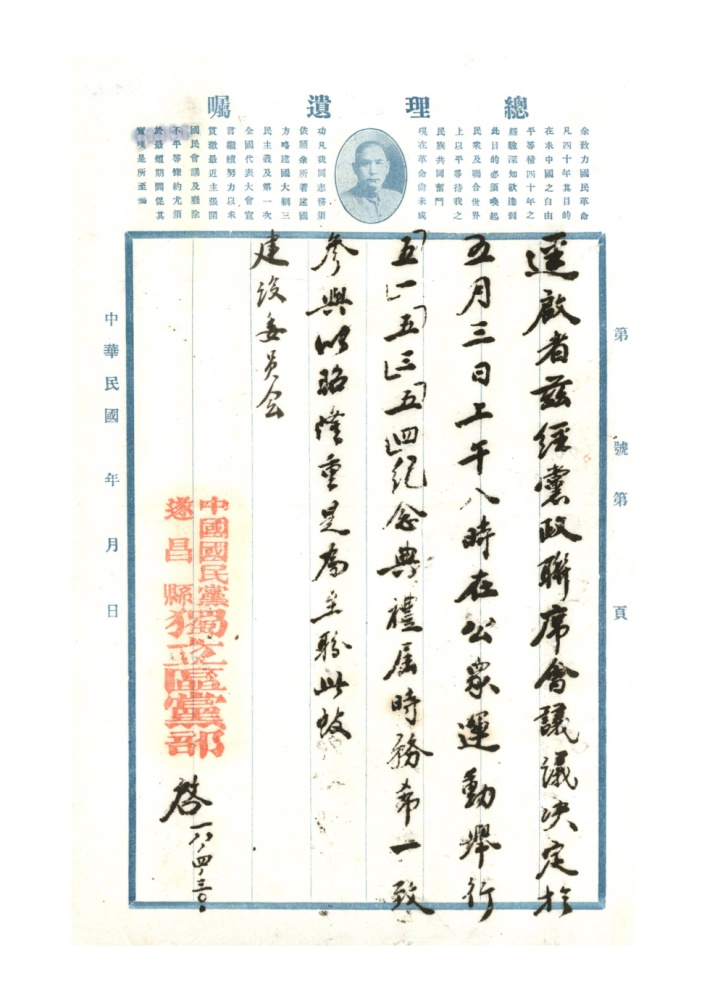 總理遺囑
余致力國民革命
凡四十年其目的
在求中國之自由
平等積四十年之
經驗深知欲達到
此目的必須喚起
民眾及聯合世界
上以平等待我之
民族共同奮鬥
現在革命尚未成
功凡我同志務須
依照余所著建國
方略建國大綱三
民主義及第一次
全國代表大會宣
言繼續努力以求
貫澈最近主張開
國民會議及廢除
不平等條約尤須
於最短期間促其
實現是所至囑
第 號第 頁
逕啟者茲經黨政聯席會議議決定於
五月三日上午八時在公眾運動舉行
「五一」「五三」「五四」紀念典禮屆時務希一致
參與以昭隆重是為至盼此致
建設委員会
中國國民黨
遂昌縣
獨立區黨部
啓 一八、四、三〇、
中華民國 年 月 日